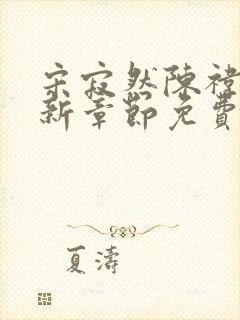 宋寂然陳禕
新章節免費
夏濤